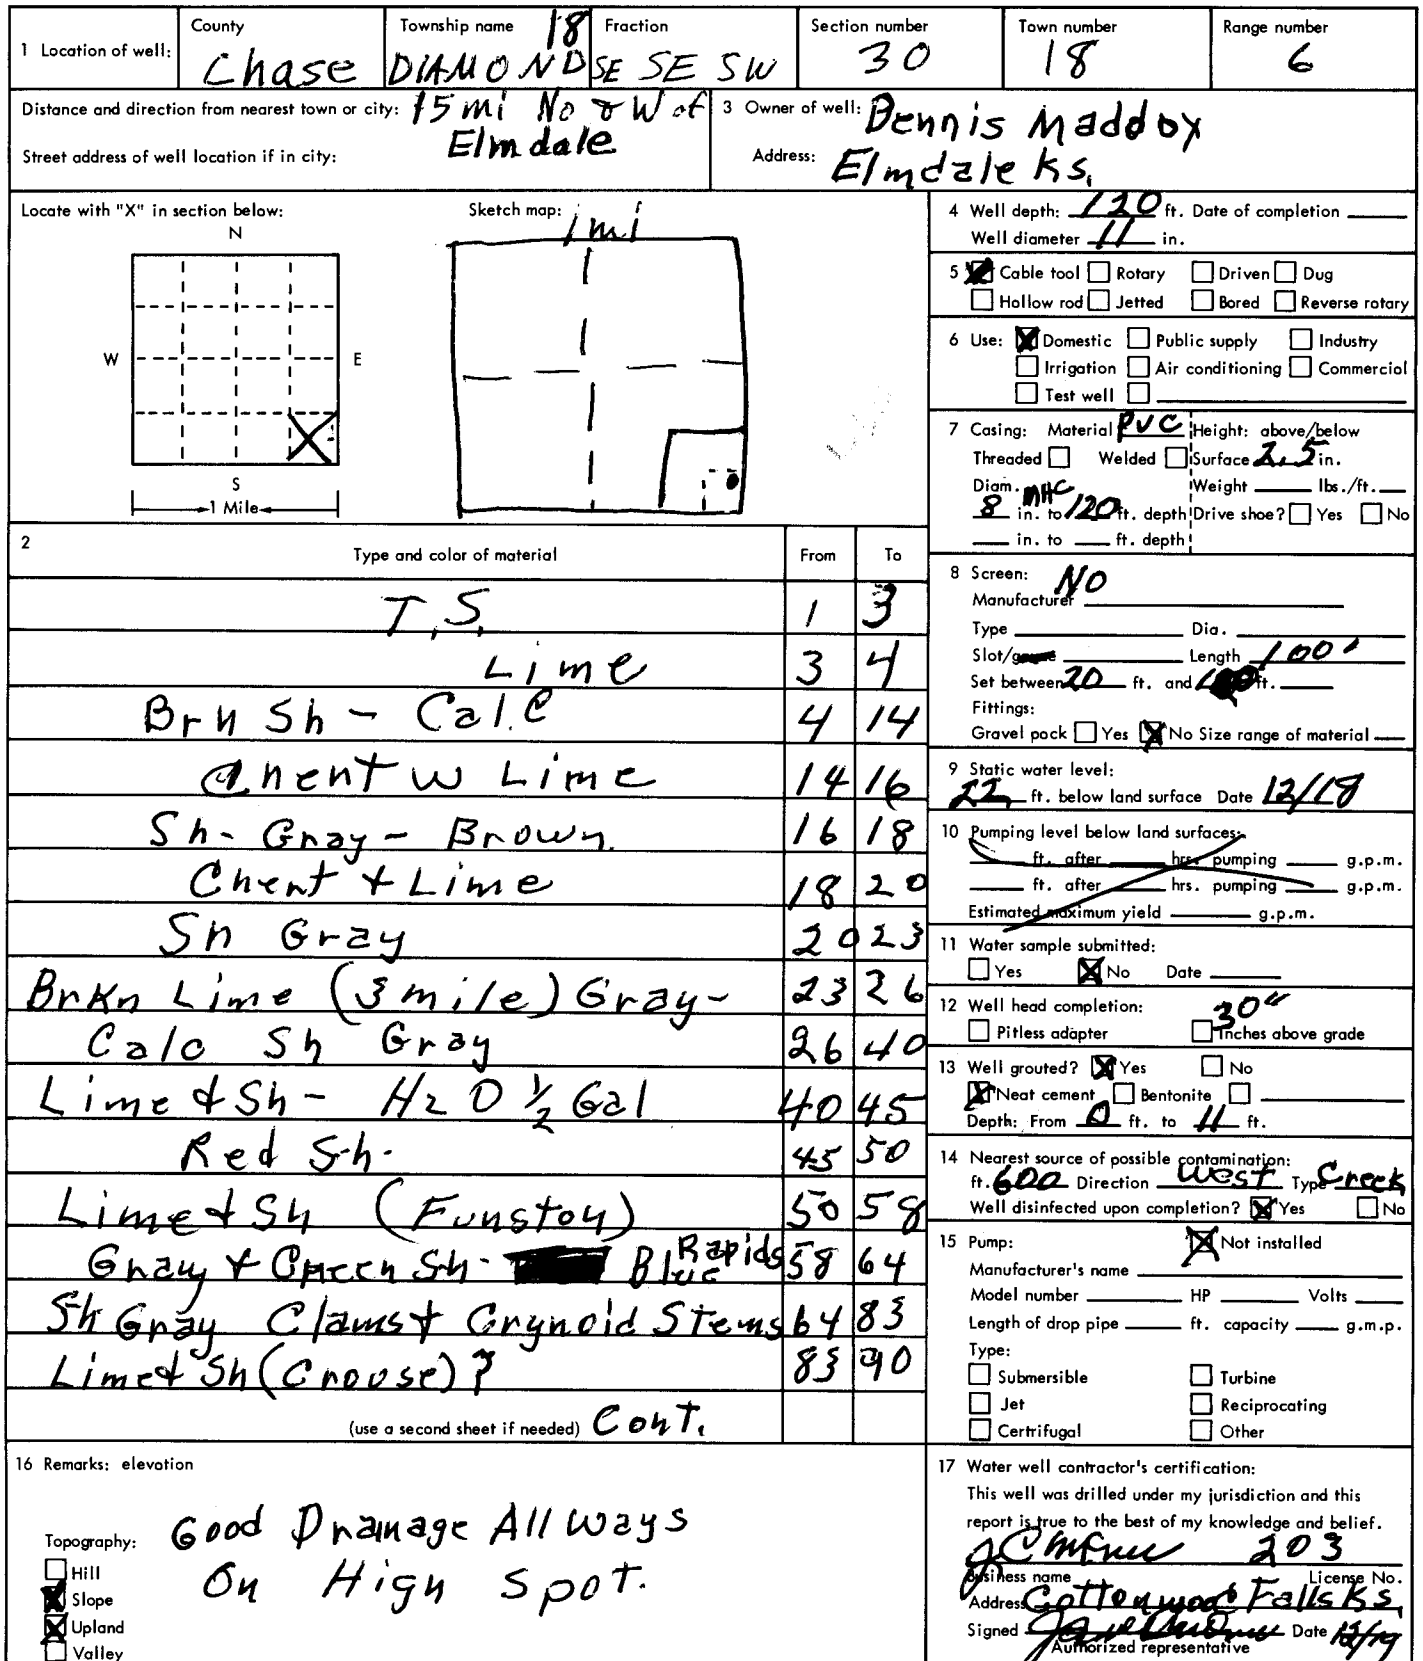 1 Location of well: County Chase Township name DIAMOND 18 Fraction SE SE SW Section number 30 Town number 18 Range number 6
Distance and direction from nearest town or city: 15 mi No & W of
Elmdale
Street address of well location if in city:
3 Owner of well: Dennis Maddox
Address: Elmdale Ks.
Locate with "X" in section below:
N
W E
S
1 Mile
Sketch map:
1 mi
2 Type and color of material From To
T.S. 1 3
Lime 3 4
Brn Sh - Calc 4 14
Chert w Lime 14 16
Sh - Gray - Brown 16 18
Chert & Lime 18 20
Sh Gray 20 23
Brkn Lime (3 mile) Gray- 23 26
Calc Sh Gray 26 40
Lime & Sh - H2O 1/2 Gal 40 45
Red Sh. 45 50
Lime & Sh (Funston) 50 58
Gray & Green Sh - Blue Rapids 58 64
Sh Gray Clams & Crynoid Stems 64 83
Lime & Sh (Crouse) ? 83 90
(use a second sheet if needed) Cont.
4 Well depth: 120 ft. Date of completion
Well diameter 11 in.
5 Cable tool Rotary Driven Dug
Hollow rod Jetted Bored Reverse rotary
6 Use: Domestic Public supply Industry
Irrigation Air conditioning Commercial
Test well
7 Casing: Material PVC Height: above/below
Threaded Welded Surface 2.5 in.
Diam. MHC Weight lbs./ft.
8 in. to 120 ft. depth Drive shoe? Yes No
in. to ft. depth
8 Screen: NO
Manufacturer
Type Dia.
Slot/ Length 100'
Set between 20 ft. and ft.
Fittings:
Gravel pack Yes No Size range of material
9 Static water level:
22 ft. below land surface Date 12/18
10 Pumping level below land surfaces:
ft. after hrs. pumping g.p.m.
ft. after hrs. pumping g.p.m.
Estimated maximum yield g.p.m.
11 Water sample submitted:
Yes No Date
12 Well head completion: 30"
Pitless adapter Inches above grade
13 Well grouted? Yes No
Neat cement Bentonite
Depth: From 0 ft. to 11 ft.
14 Nearest source of possible contamination:
ft. 600 Direction West Type Creek
Well disinfected upon completion? Yes No
15 Pump: Not installed
Manufacturer's name
Model number HP Volts
Length of drop pipe ft. capacity g.m.p.
Type:
Submersible Turbine
Jet Reciprocating
Certrifugal Other
16 Remarks: elevation
Good Drainage All Ways
On High Spot.
Topography:
Hill
Slope
Upland
Valley
17 Water well contractor's certification:
This well was drilled under my jurisdiction and this
report is true to the best of my knowledge and belief.
203
Business name License No.
Address Cottonwood Falls Ks.
Signed Date 12/19
Authorized representative